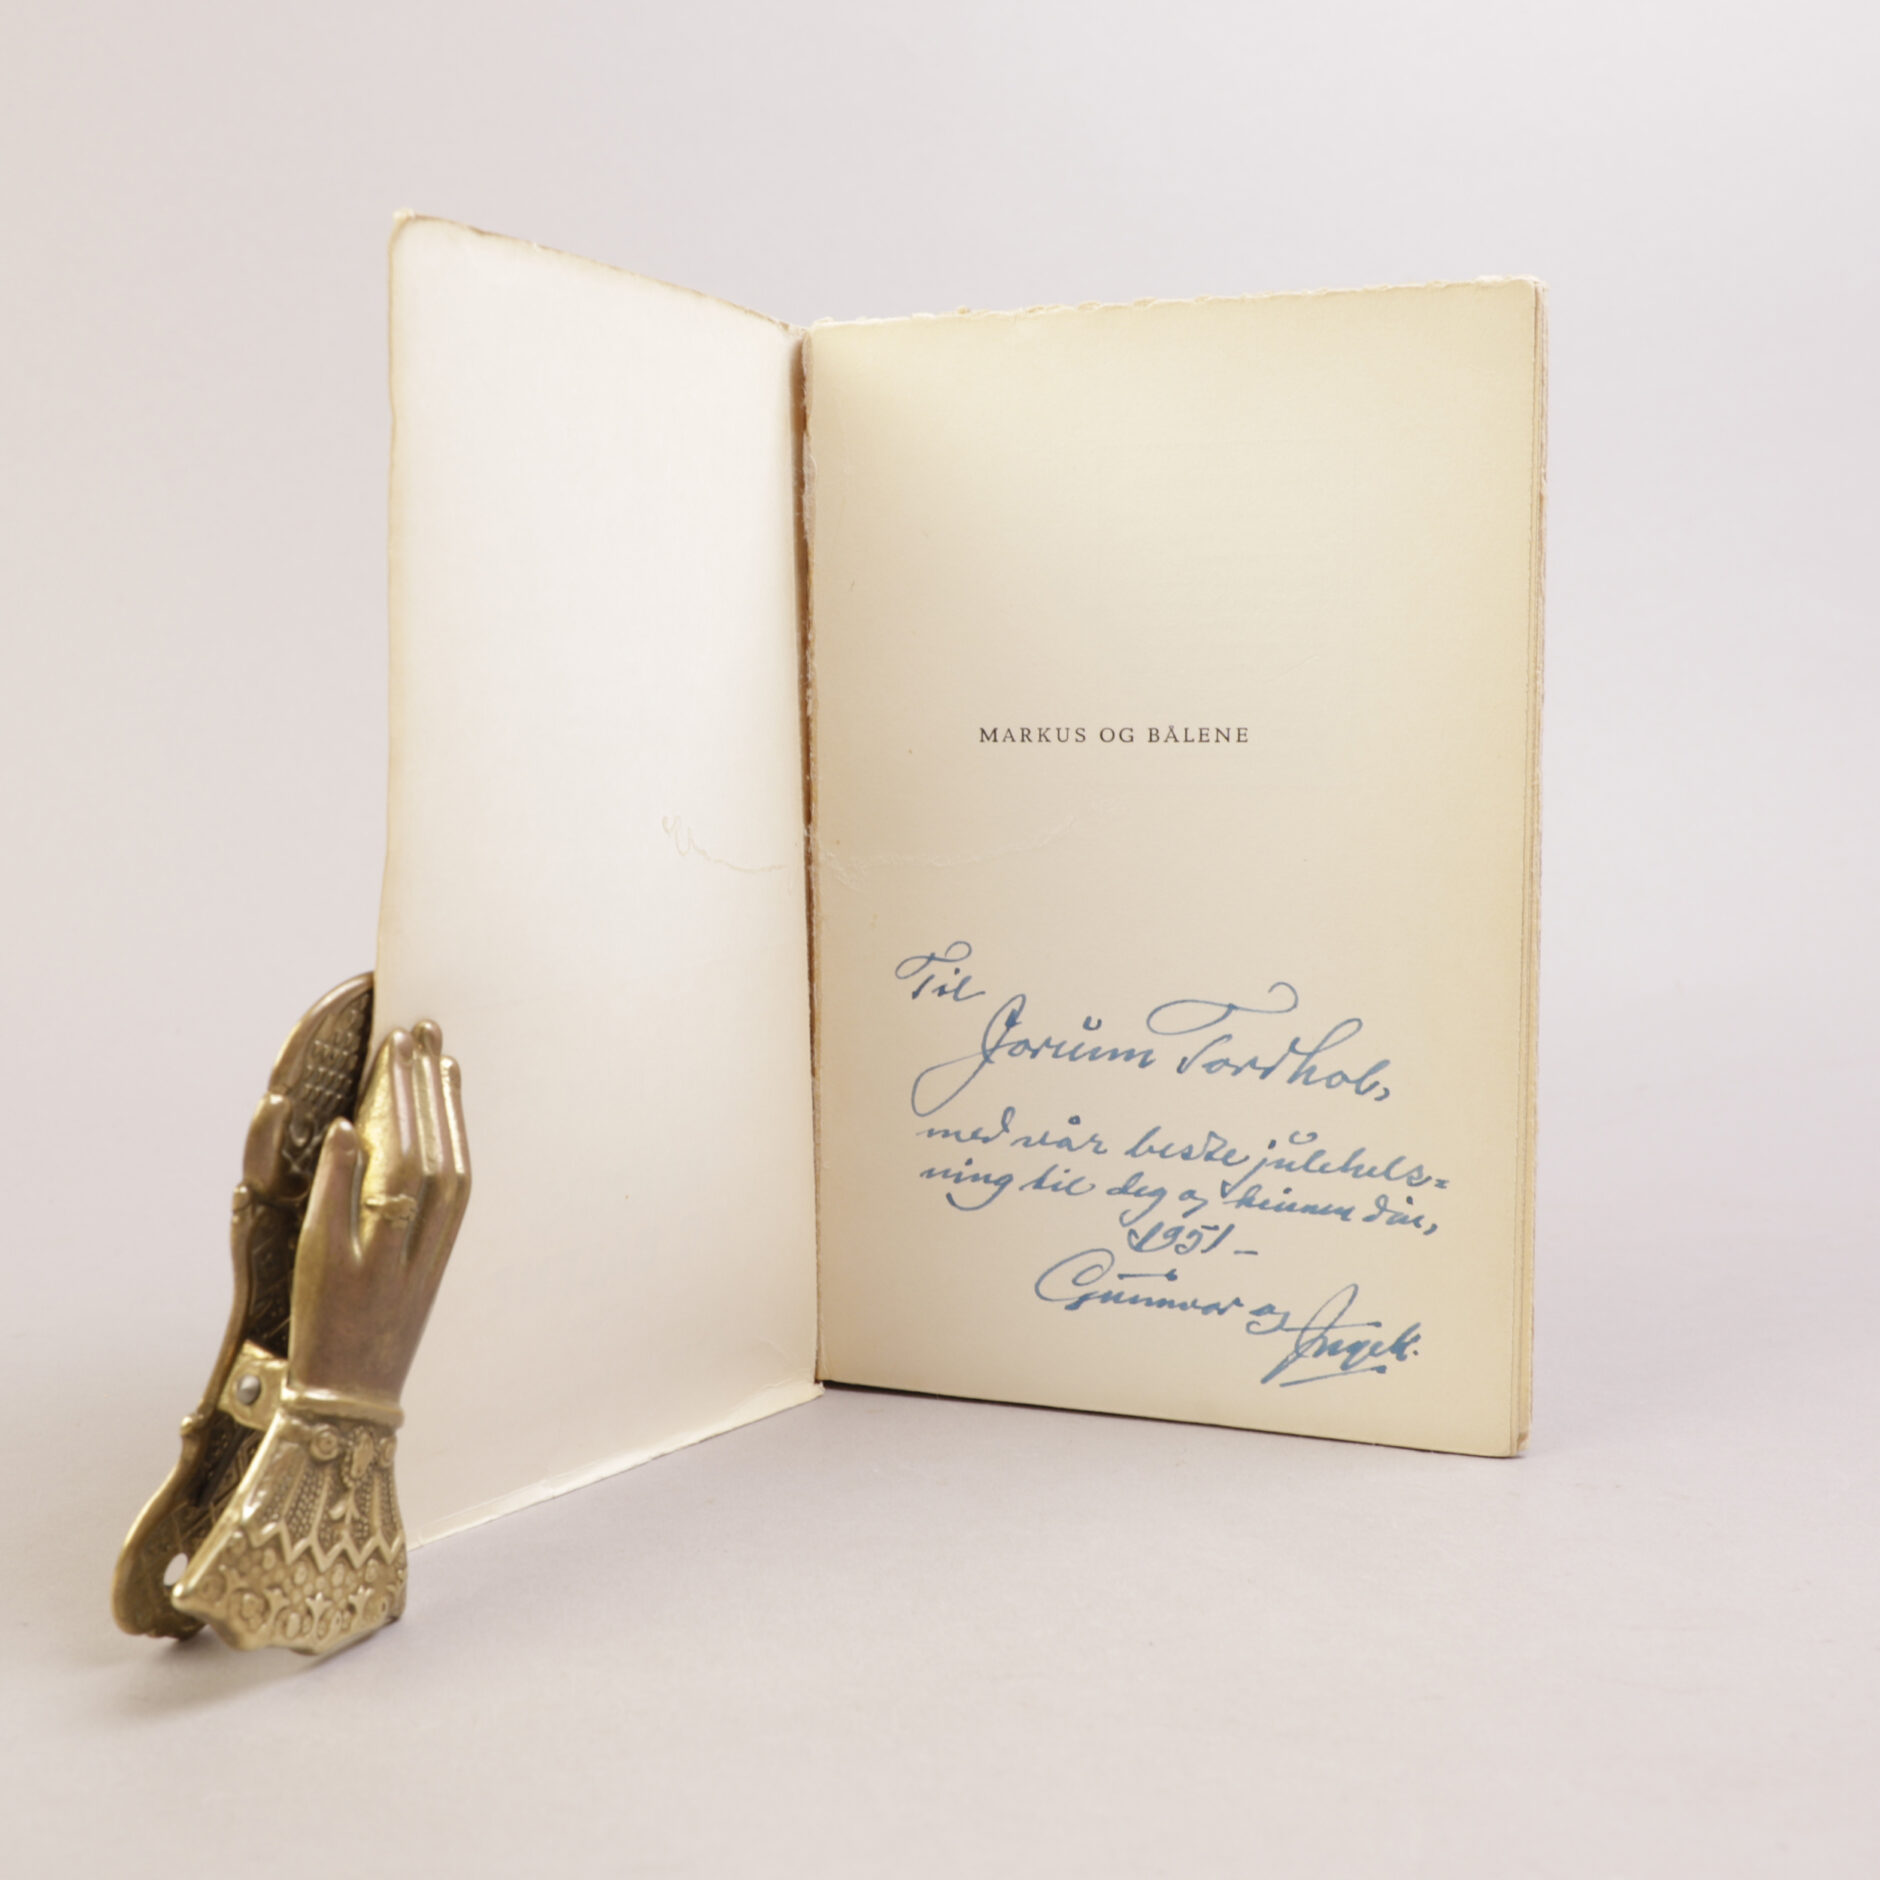 MARKUS OG BÅLENE
Til
Jorunn Tordhol,
med vår beste julehels=
ning til deg og heimen din,
1951 –
Gunnvor og
IngeK.